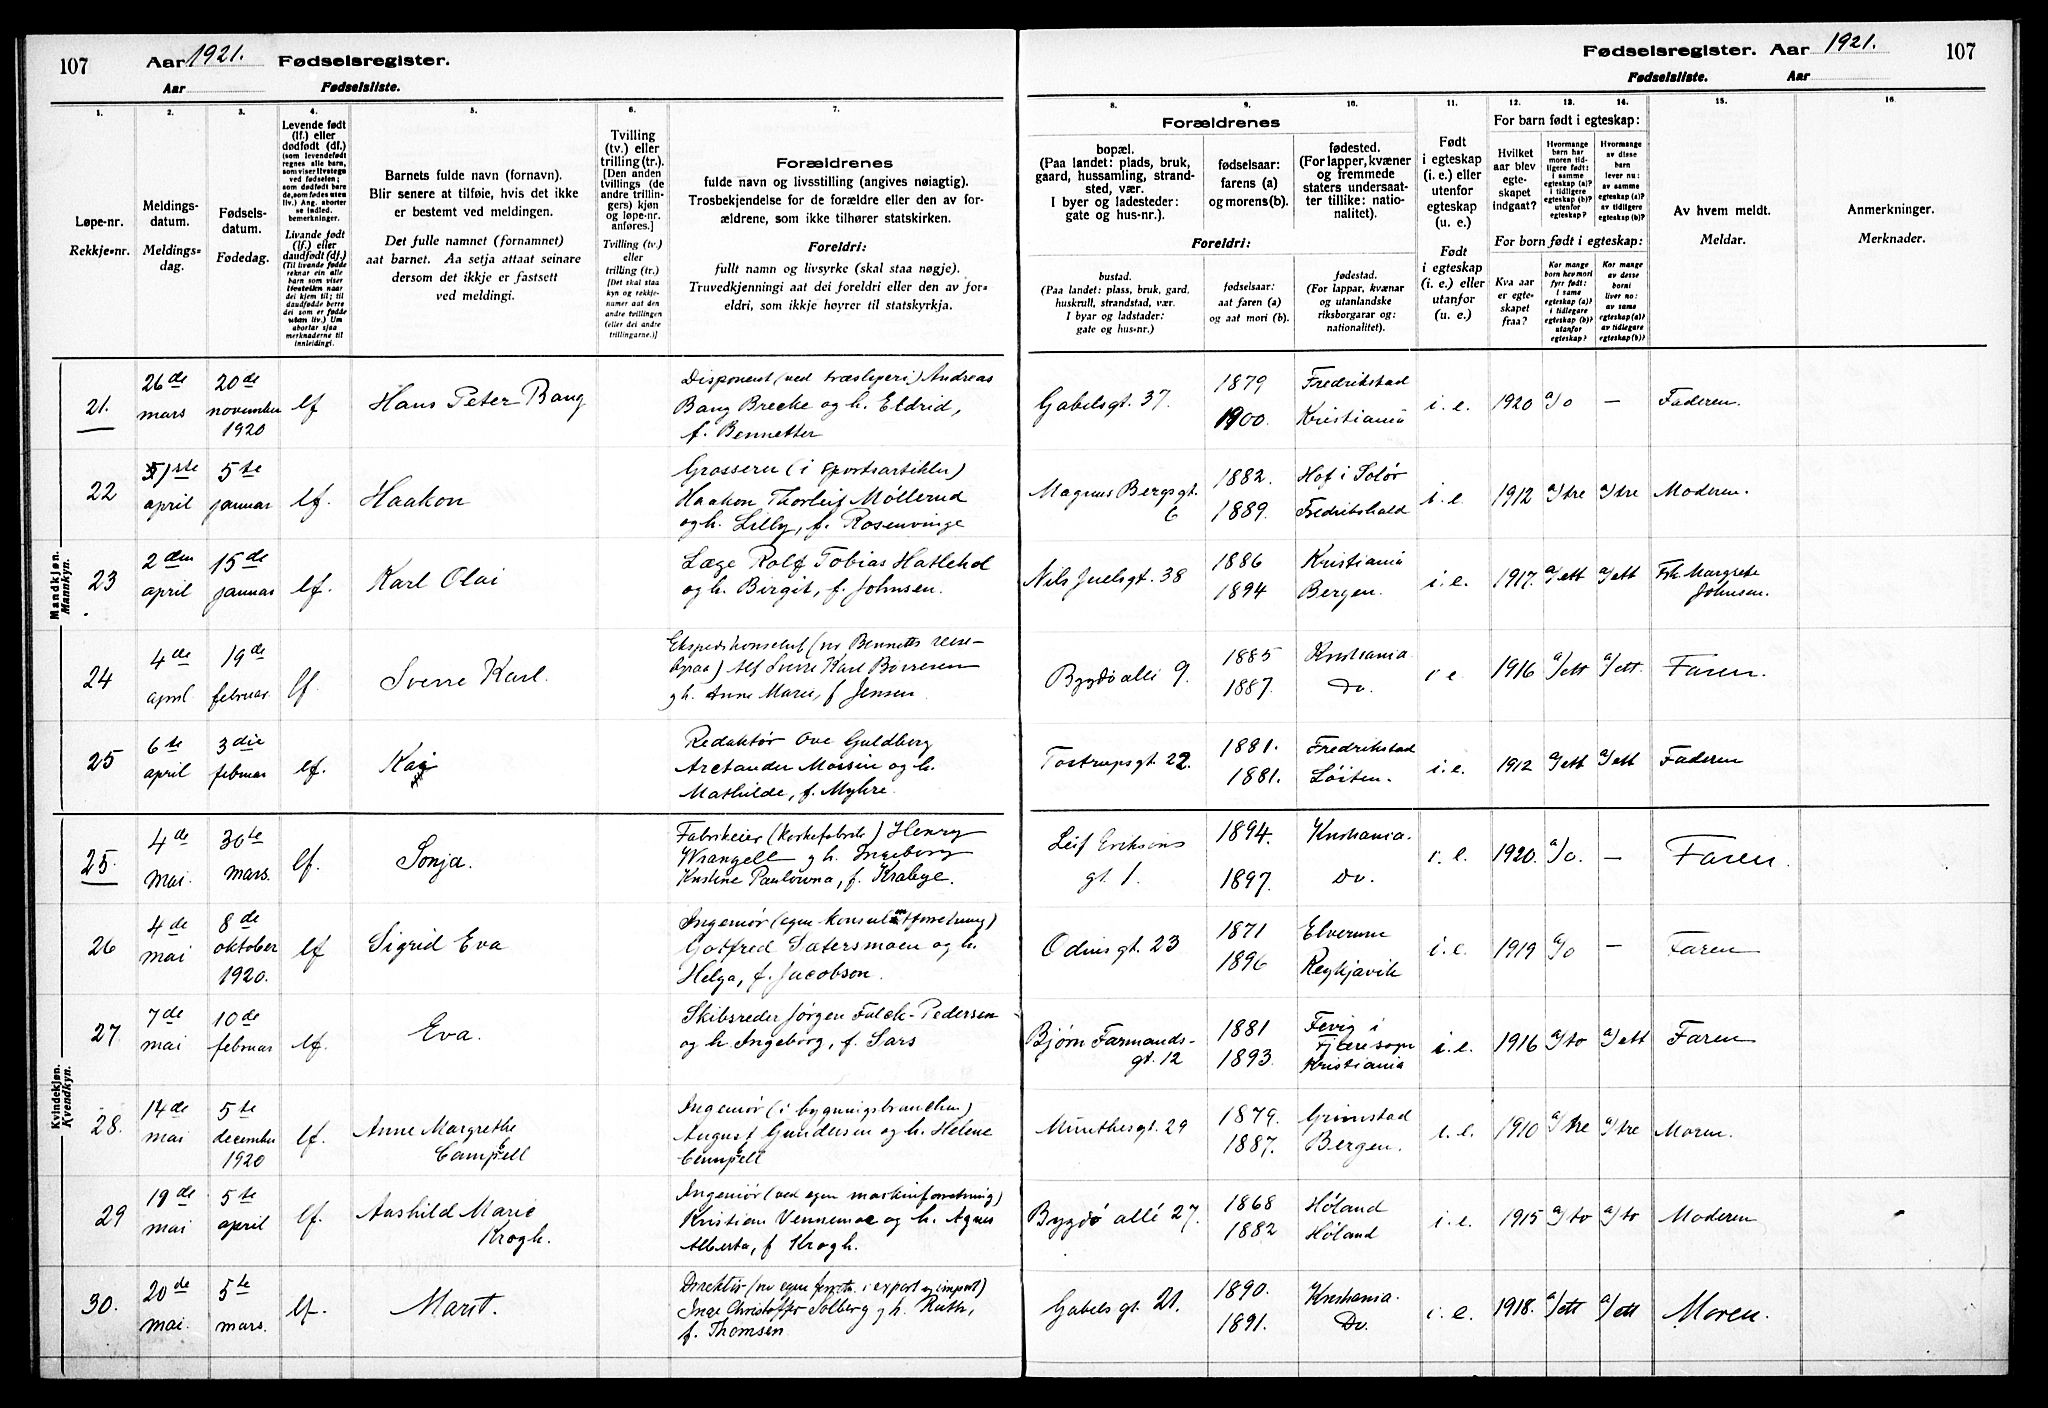 107
Aar 1921.
Fødselsregister.
Aar
Fødselsliste.
Fødselsregister. Aar 1921.
107
Fødselsliste.
Aar
1.
Løpe-nr.
Rekkje-nr.
2.
Meldings-
datum.
Meldings-
dag.
3.
Fødsels-
datum.
Fødedag.
4.
Levende født
(lf.) eller
dødfødt (df.)
(som levendefødt
regnes alle barn,
som viser livstegn
ved fødselen;
som dødfødt bare
de, som fødes uten
liv.) Ang. aborter
se indled.
bemerkninger.
Livande født
(lf.) eller
daudfødt (df.)
5.
Barnets fulde navn (fornavn).
Blir senere at tilføie, hvis det ikke
er bestemt ved meldingen.
Det fulle namnet (fornamnet)
aat barnet. Aa setja attaat seinare
dersom det ikkje er fastsett
ved meldingi.
6.
Tvilling
(tv.) eller
trilling (tr.).
[Den anden
tvillings (de
andre trillin-
gers) kjøn
og løpe-nr.
anføres.]
Tvilling (tv.)
eller
trilling (tr.)
[Det skal staa
kyn og rekkje-
numer aat den
andre tvillingen
(eller dei andre
trillingarne.)]
7.
Forældrenes
fulde navn og livsstilling (angives nøiagtig).
Trosbekjendelse for de forældre eller den av for-
ældrene, som ikke tilhører statskirken.
Foreldri:
fullt namn og livsyrke (skal staa nøgje).
Truvedkjenningi aat dei foreldri eller den av for-
eldri, som ikkje høyrer til statskyrkja.
8.
Forældrenes
bopæl.
(Paa landet: plads, bruk,
gaard, hussamling, strand-
sted, vær.
I byer og ladesteder:
gate og hus-nr.).
Foreldri:
bustad.
(Paa landet: plass, bruk, gard,
huskrull, strandstad, vær.
I byar og ladstader:
gate og hus-nr.)
9.
fødselsaar:
farens (a)
og morens (b).
fødselsaar:
aat faren (a)
og aat mori (b).
10.
fødested.
(For lapper, kvæner
og fremmede
staters undersaat-
ter tillike: natio-
nalitet).
fødestad.
(For lappar, kvænar
og utanlandske
riksborgarar og:
nationalitet).
11.
Født
i egteskap
(i. e.) eller
utenfor
egteskap
(u. e.)
Født
i egteskap
(i. e.) eller
utanfor
(u. e.)
For barn født i egteskap:
12.
Hvilket
aar blev
egte-
skapet
indgaat?
For born født i egteskap:
Kva aar
er egte-
skapet
fraa?
13.
Hvormange
barn har
moren tid-
ligere født:
i samme
egteskap (a)?
i tidligere
egteskap (b)?
utenfor
egteskap?
Kor mange
born hev mori
fyrr født:
i same
egteskap (a)?
i tidlegare
egteskap (b)?
utanfor
egteskap?
14.
Hvormange
av disse
barn
lever nu:
av samme
egteskap (a)?
av tidligere
egteskap (b)?
Kor mange
av desse
borni
liver no:
av same
egteskap (a)?
av tidlegare
egteskap (b)?
15.
Av hvem meldt.
Meldar.
16.
Anmerkninger.
Merknader.
Mandkjøn.
Mannkyn.
21.
26de
mars
20de
november
1920
lf
Hans Peter Bang
Disponent (ved træsliperi) Andreas
Bang Brecke og h. Eldrid,
f. Bennetter
Gabelsgt. 37.
1879
1900.
Fredrikstad
Kristiania
i. e.
1920
a/o
—
Faderen.
22
1ste
april
5te
januar
lf.
Haakon
Grosserer (i sportsartikler)
Haakon Thorleif Møllerud
og h. Lilly, f. Rosenvinge
Magnus Bergsgt.
6
1882.
1889.
Hof i Solør
Fredrikshald
i. e.
1912
a/tre
a/tre
Moderen.
23
2den
april
15de
januar
lf.
Karl Olai
Læge Rolf Tobias Hatlehol
og h. Birgit, f. Johnsen.
Nils Juelsgt. 38
1886
1894
Kristiania
Bergen.
i. e.
1917.
a/ett
a/ett
Frk. Margrete
Johnsen.
24
4de
april
19de
februar
lf.
Sverre Karl.
Ekspedisjonschef (ved Bennetts reise-
byraa) Alf Sverre Karl Børresen
og h. Anne Marie, f Jensen.
Bygdø allé 9.
1885
1887.
Kristiania
Do.
i e.
1916
a/ett
a/ett.
Faren.
25
6te
april
3die
februar
lf.
Kai
Redaktør Ove Guldberg
Arctander Moisin og h.
Mathilde, f. Myhre.
Tostrupsgt. 22.
1881.
1881.
Fredrikstad
Løiten.
i. e.
1912
a/ett
a/ett
Faderen
Kvindekjøn.
Kvendkyn.
25.
4de
mai.
30te
mars.
lf.
Sonja.
Fabrikeier (korkefabrik) Henry
Wrangell og h. Ingeborg
Kristine Paulowna, f. Krabye.
Leif Eriksøns
gt. 1.
1894.
1897.
Kristiania.
Do.
i. e.
1920.
a/o.
—
Faren.
26
4de
mai
8de
oktober
1920.
lf
Sigrid Eva
Ingeniør (egen konsulentforretning)
Godtfred Sætersmoen og h.
Helga, f. Jacobson.
Odinsgt. 23
1871
1896
Elverum
Reykjavik
i. e.
1919
a/o
—
Faren
27.
7de
mai
10de
februar
lf.
Eva.
Skibsreder Jørgen Falck-Pedersen
og h. Ingeborg, f. Sars
Bjørn Farmands-
gt. 12
1881
1893.
Fevig i
Fjæresogn
Kristiania
i. e.
1916
a/to
a/ett
Faren
28.
14de
mai
5te
december
1920
lf.
Anne Margrethe
Campbell
Ingeniør (i bygningsbranchen)
August Gundersen og h. Helene
Campbell
Munthesgt. 29
1879.
1887.
Grimstad
Bergen.
i. e.
1910
a/tre
a/tre
Moren.
29
19de
mai
5te
april
lf.
Aashild Marie
Krogh.
Ingeniør (ved egen maskinforretning)
Kristian Vennemoe og h. Agnes
Alberta, f Krogh.
Bygdø allé 27.
1868
1882
Høland
Høland
i. e.
1915
a/to
a/to
Moderen
30.
20de
mai.
5te
mars.
lf.
Marit.
Direktør (ved egen forretn. i export og import)
Inge Christoffer Solberg og h. Ruth,
f. Thomsen
Gabels gt. 21.
1890.
1891.
Kristiania.
Do.
i. e.
1918.
a/ett
a/ett
Moren.